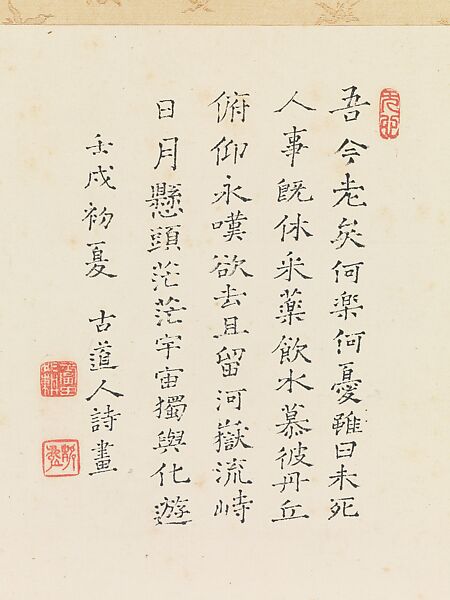 吾今老矣何楽何憂雖曰未死
人事既休采薬飲水慕彼丹丘
俯仰永嘆欲去且留河嶽流峙
日月懸頭茫茫宇宙獨與化遊
壬戌初夏 古道人詩畫